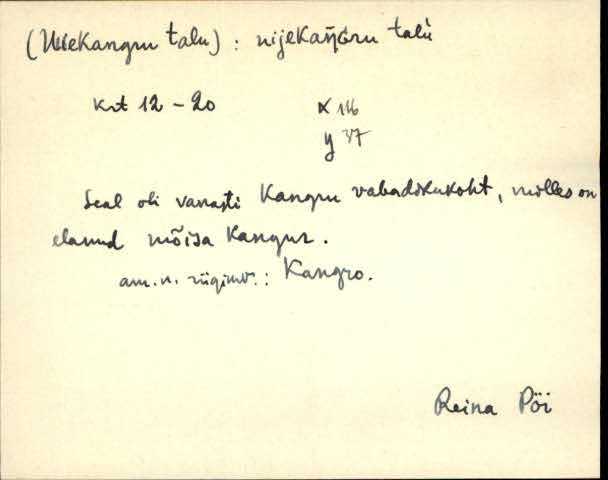 (Uiekangru talu) : uijekaŋ̄gru talù
krt 12 - 20 x 116
y 37
Seal oli vanasti Kangru vabadikukoht, milles on
elanud mõisa kangur.
am. n. riigimv.: Kangro.
Reina Pöi